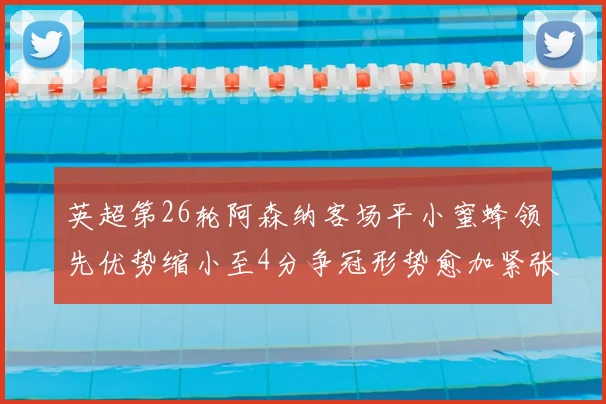 英超第26轮阿森纳客场平小蜜蜂领
先优势缩小至4分争冠形势愈加紧张